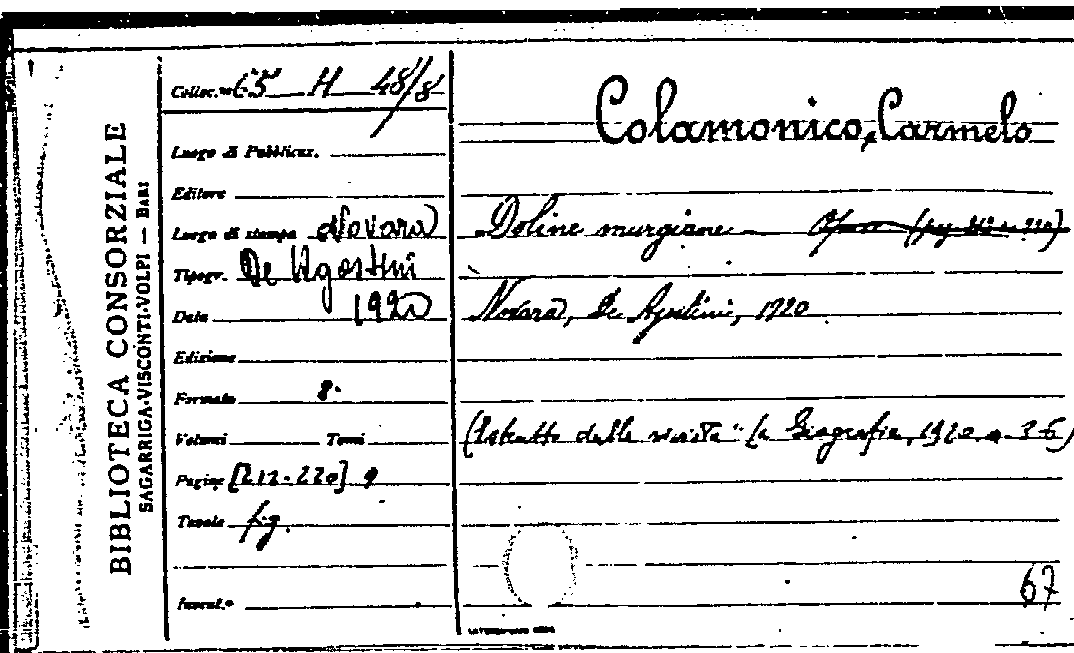 BIBLIOTECA CONSORZIALE
SAGARRIGA-VISCONTI-VOLPI — BARI
Colloc.ne 65 H 48/8
Luogo di Pubblicaz.
Editore
Luogo di stampa Novara
Tipogr. De Agostini
Data 1920
Edizione
Formato 8°
Volumi Tomi
Pagine [212-220] 9
Tavole fig.
Invent.°
Colamonico, Carmelo
Doline murgiane
Novara, De Agostini, 1920
(Estratto dalla rivista "La Geografia, 1920 n. 3-6)
67